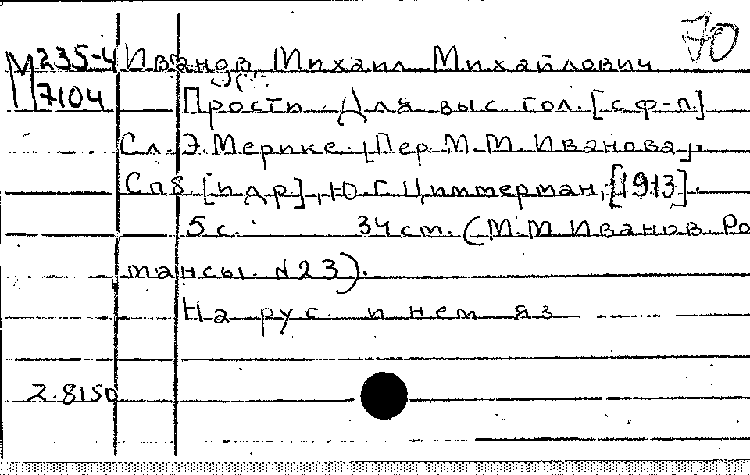 70
М 235-4 Иванов, Михаил Михайлович
7104 Прости. Для выс. гол. [с ф-п.]
Сл. Э. Мерике. [Пер. М. М. Иванова].
Спб. [и др.], Ю. Г. Циммерман, [1913].
5 с. 34 см. (М. М. Иванов. Ро
мансы. №23).
На рус. и нем яз
2.8150